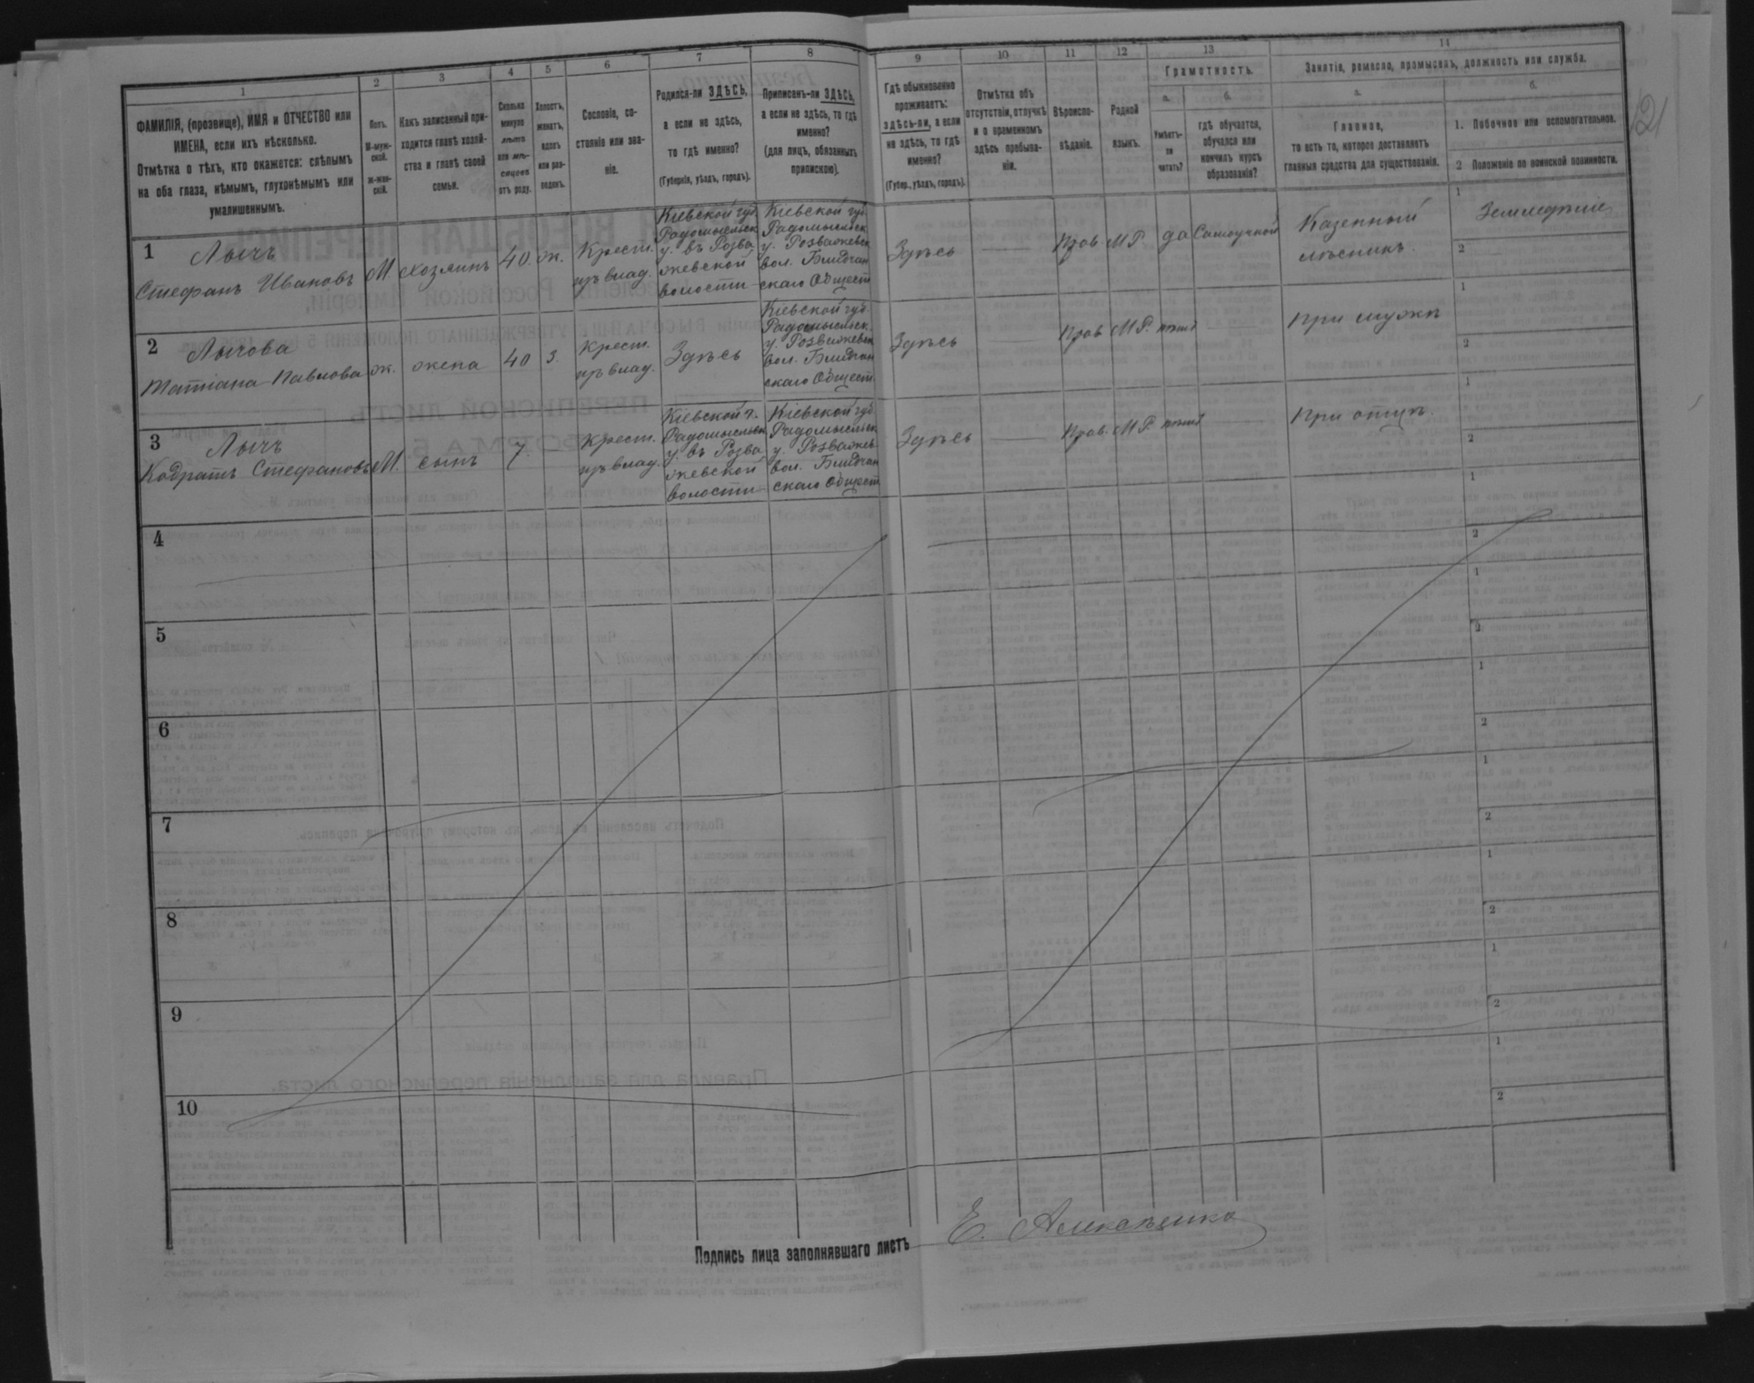 1
2
3
4
5
6
7
8
ФАМИЛІЯ, (прозвище), ИМЯ и ОТЧЕСТВО или
ИМЕНА, если ихъ нѣсколько.
Отмѣтка о тѣхъ, кто окажется: слѣпымъ
на оба глаза, нѣмымъ, глухонѣмымъ или
умалишеннымъ.
Полъ.
М-муж-
ской.
Ж-жен-
скій.
Какъ записанный при-
ходится главѣ хозяй-
ства и главѣ своей
семьи.
Сколько
минуло
лѣтъ
или мѣ-
сяцевъ
отъ роду.
Холостъ,
женатъ,
вдовъ
или раз-
веденъ.
Сословіе, со-
стояніе или зва-
ніе.
Родился-ли ЗДѢСЬ,
а если не здѣсь,
то гдѣ именно?
(Губернія, уѣздъ, городъ).
Приписанъ-ли ЗДѢСЬ,
а если не здѣсь, то гдѣ
именно?
(для лицъ, обязанныхъ
припискою).
9
10
11
12
13
14
Гдѣ обыкновенно
проживаетъ:
здѣсь-ли, а если
не здѣсь, то гдѣ
именно?
(Губер., уѣздъ, городъ).
Отмѣтка объ
отсутствіи, отлучкѣ
и о временномъ
здѣсь пребыва-
ніи.
Вѣроиспо-
вѣданіе.
Родной
языкъ.
Грамотность.
а.
б.
Умѣетъ-
ли
читать?
гдѣ обучается,
обучался или
кончилъ курсъ
образованія?
Занятія, ремесло, промыселъ, должность или служба.
а.
б.
Главное,
то есть то, которое доставляетъ
главныя средства для существованія.
1. Побочное или вспомогательное.
2 Положеніе по воинской повинности.
121
1
Лычъ
Стефанъ Ивановъ
М
хозяинъ
40.
ж.
Крест.
изъ влад.
Кіевской губ.
Радомысльск.
у. въ Розва
жевской
волости
Кіевской губ.
Радомысльск.
у. Розважевск.
вол.
скаго Общест
Здѣсь
Прав.
М Р.
да
Самоучкой
Казенный
лѣсникъ.
1
Земледѣліе
2
2
Лычова
Татіана Павлова
ж.
жена
40
з.
Крест.
изъ влад.
Здѣсь
Кіевской губ.
Радомысльск.
у. Розважевск.
вол.
скаго Общест
Здѣсь
Прав
М Р.
при мужѣ
1
2
3
Лычъ
Кодратъ Стефановъ
М.
сынъ
7
Крест.
изъ влад.
Кіевской г.
Радомысльск.
у. въ Розва
жевской
волости
Кіевской губ
Радомысльск
у. Розважев.
вол.
скаго Общест
Здѣсь
Прав.
М Р.
при отцѣ.
1
2
4
1
2
5
1
2
6
1
2
7
1
2
8
1
2
9
1
2
10
1
2
Подпись лица заполнявшаго листъ